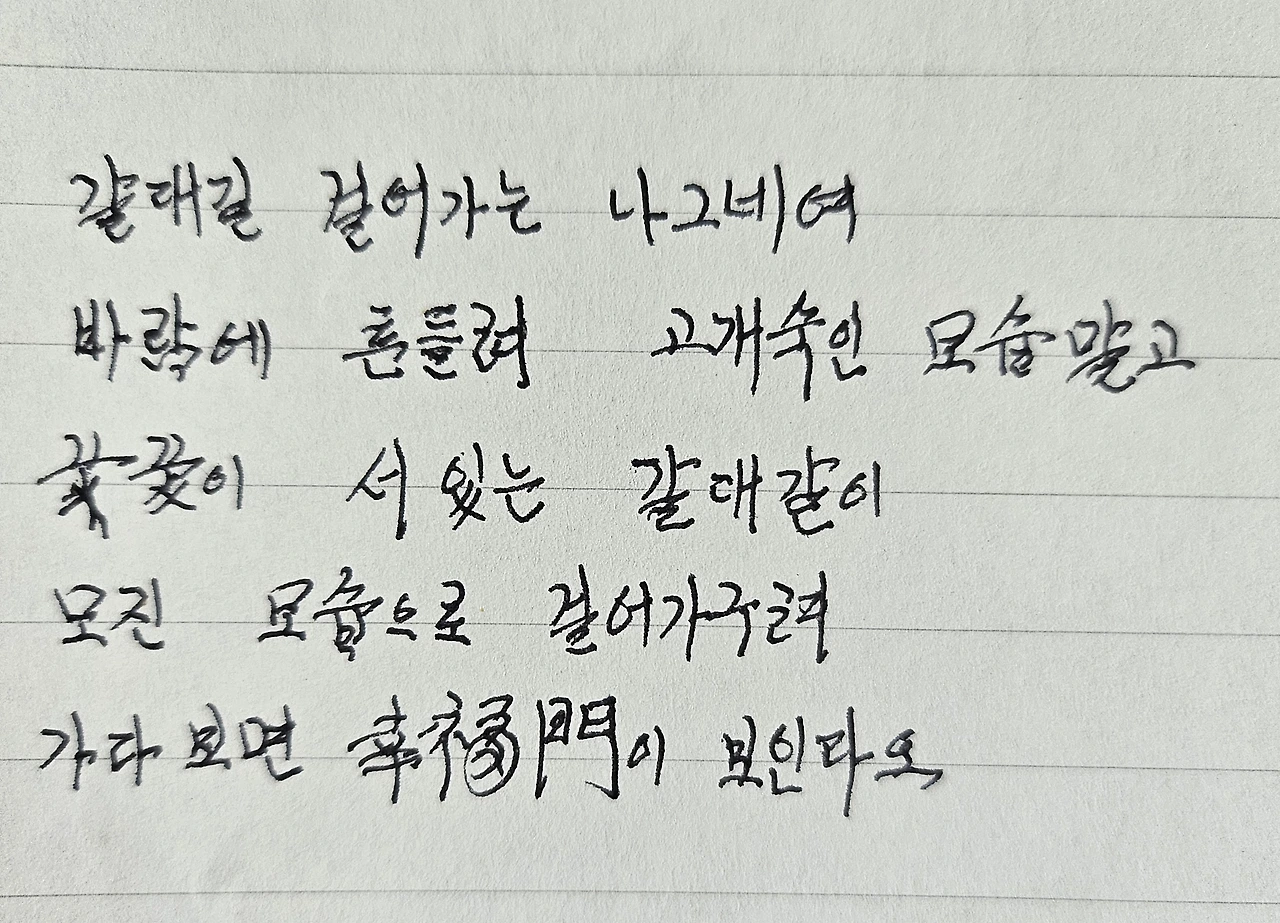 갈대길 걸어가는 나그네여
바람에 흔들려 고개숙인 모습말고
꽃꽃이 서 있는 갈대같이
모진 모습으로 걸어가구려
가다보면 幸福門이 보인다오